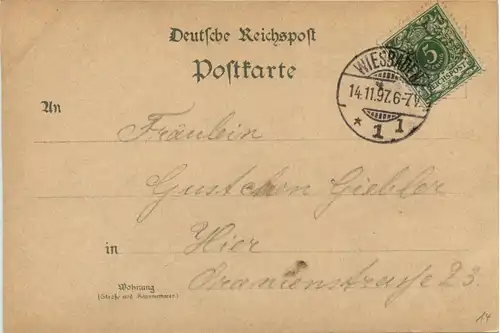 Deutsche Reichspost
Postkarte
WIESBADEN
14.11.97.6-7V.
* 1 1
5
REICHSPOST
An
Fräulein
Gustchen Giebler
in
Hier
Wohnung
(Straße und Hausnummer)
Oranienstrasse 23.
14